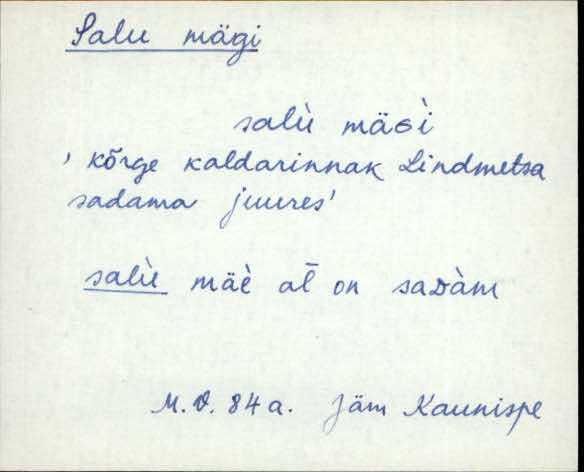 Salu mägi
salù mäGì
'kõrge kaldarinnak Lindmetsa
sadama juures'
salù mäè al̄ on saDàm
M.V. 84 a. Jäm Kaunispe